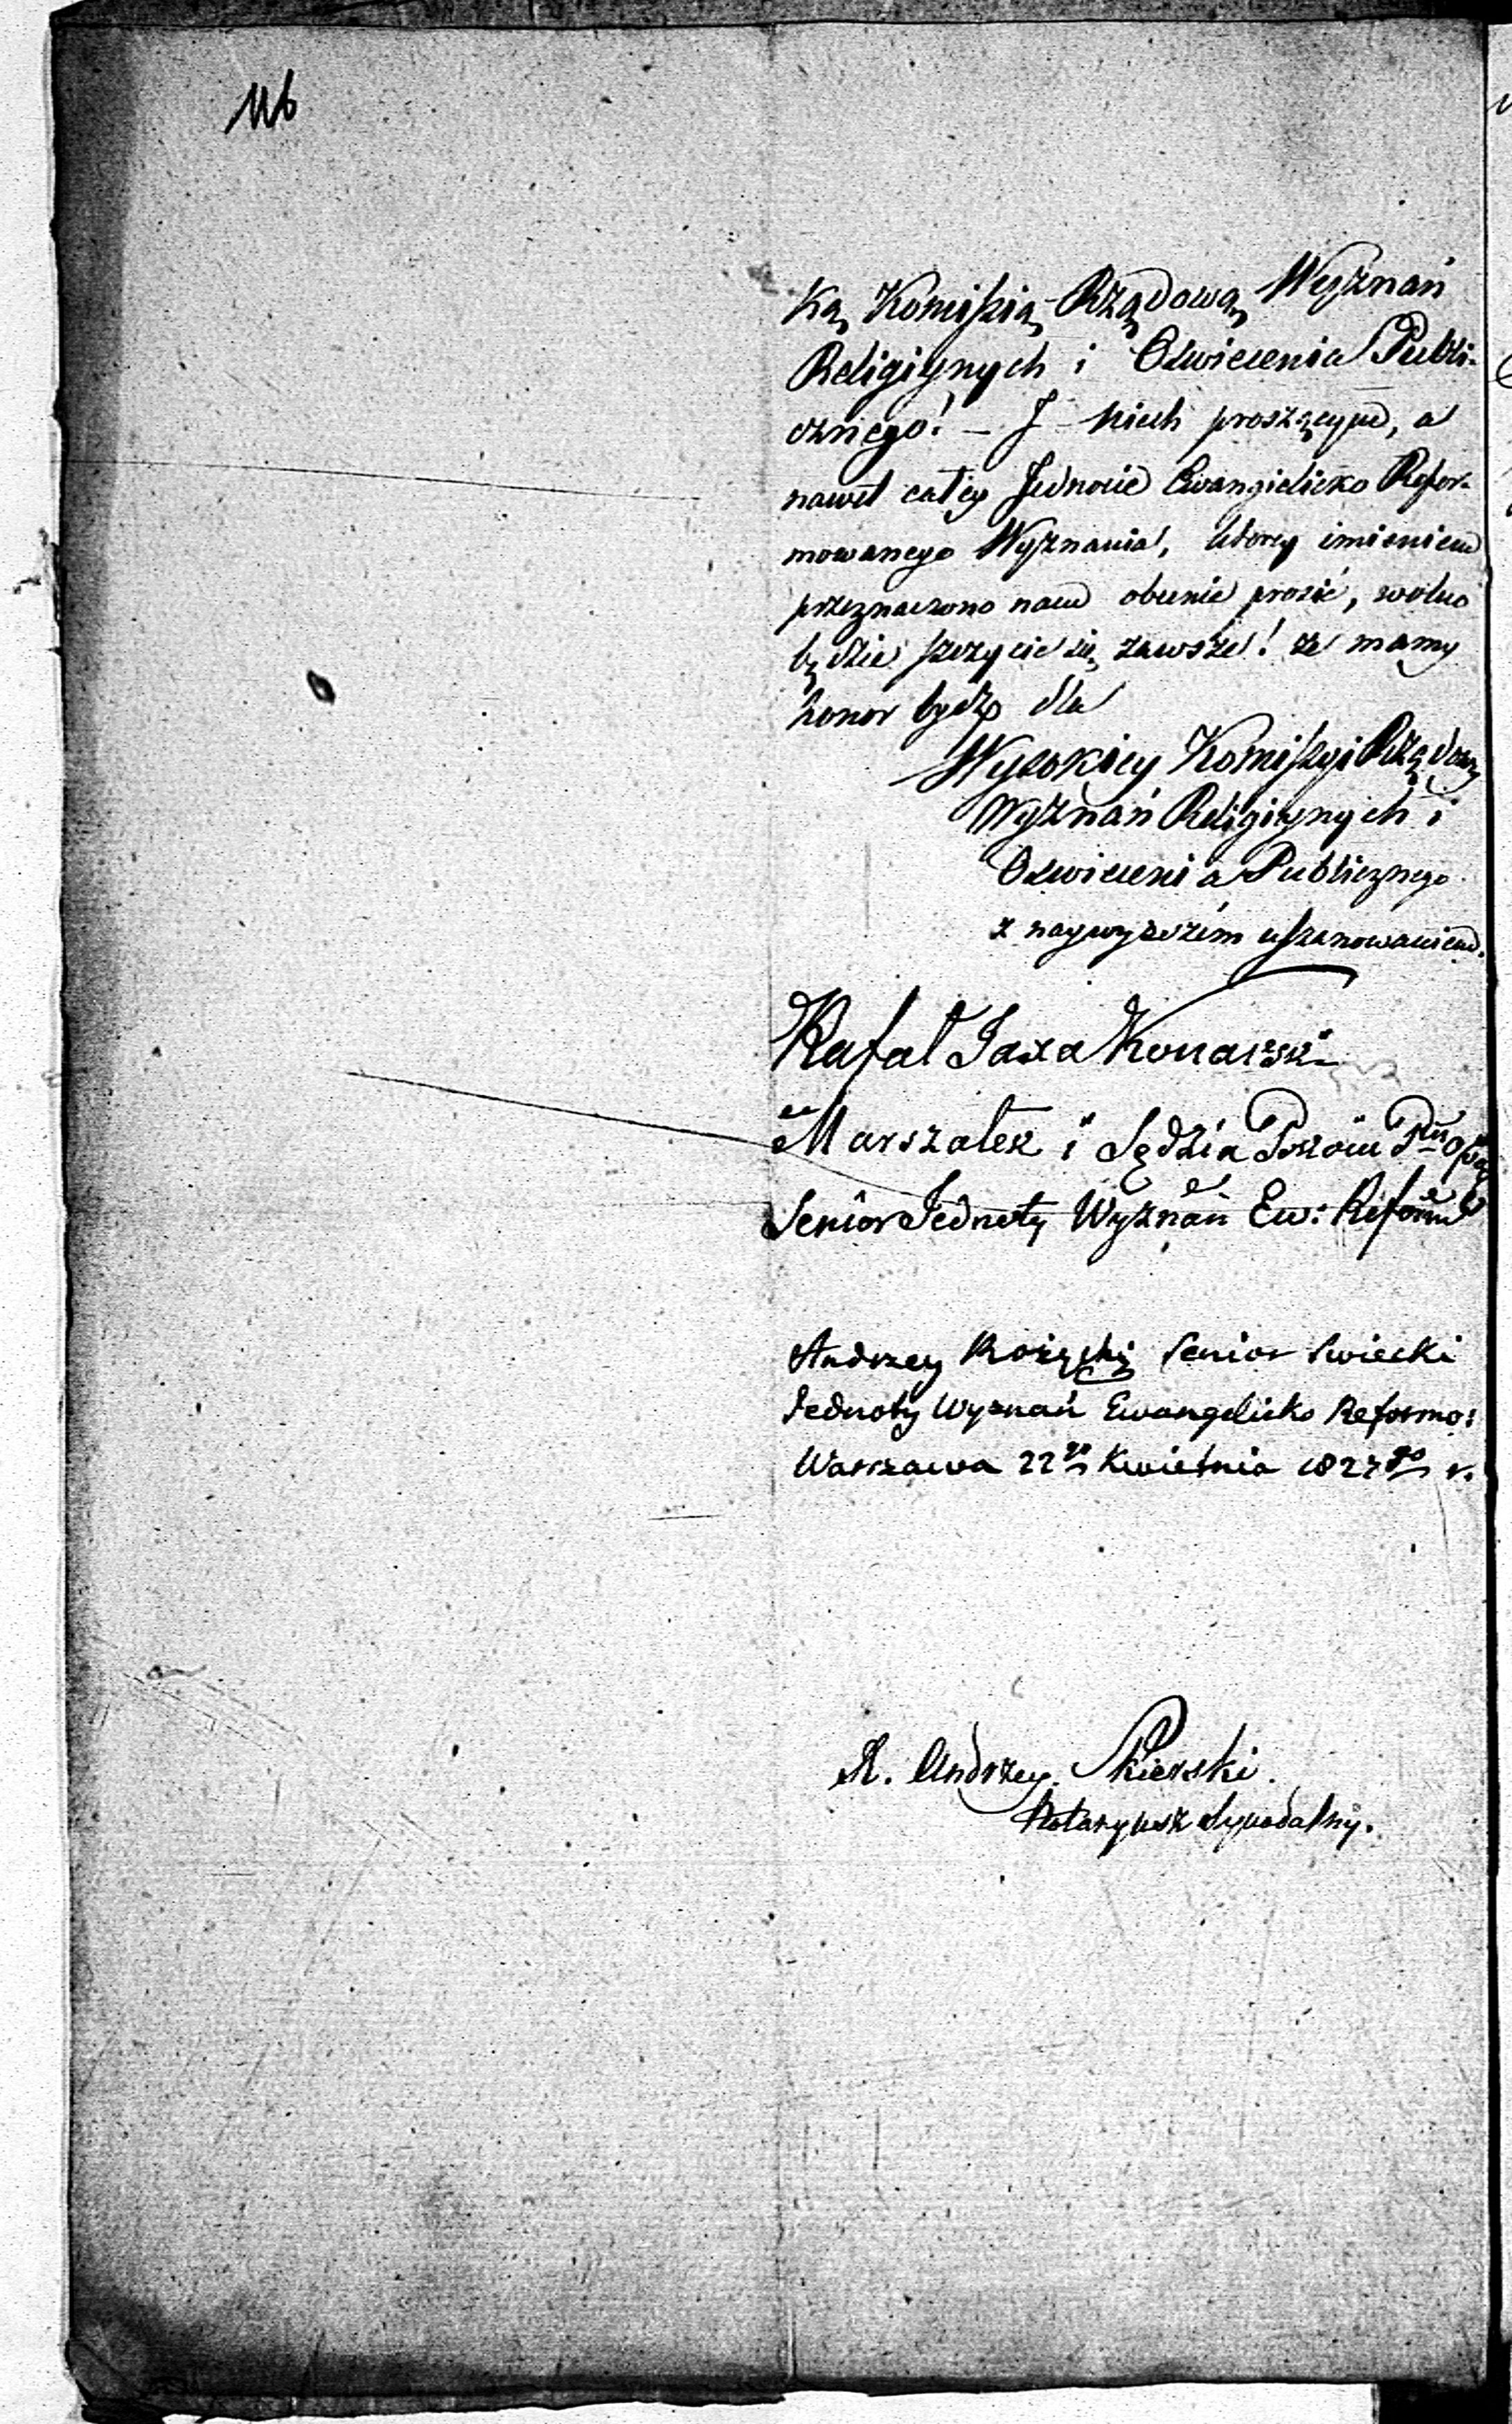 116
ką Komissią Rządową Wyznań
Religiynych i Oświecenia Publi-
cznego! – I niech proszącym, a
nawet całey Jednocie Ewangielicko Refor-
mowanego Wyznania, którey imieniem
przeznaczono nam obecnie prosić, wolno
będzie szczycić się zawsze! że mamy
honor bydź dla
Wysokiey Komissyi Rządowey
Wyznań Religiynych i
Oświecenia Publicznego
z naywyższém uszanowaniem.
Rafał Jaxa Konarski
Marszałek i Sędzia Pokoiu Ptu
Senior Jednoty Wyznań Ew: Reform
Andrzey Senior Swiecki
Jednoty Wyznań Ewangelicko Reformo:
Warszawa 22go Kwietnia 1827go r.
X. Andrzey Skierski.
Notaryusz Synodalny.